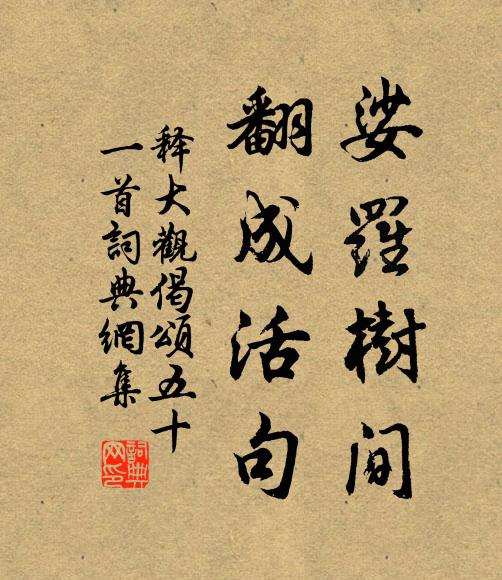 娑羅樹間
翻成活句
释大觀偈頌五十
一首詞典網集
詞典网印